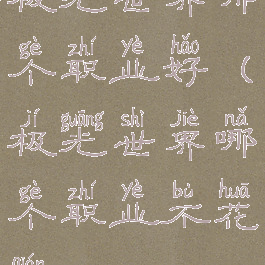 极光世界哪
gè zhí yè hǎo
个职业好（
jí guāng shì jiè nǎ
极光世界哪
gè zhí yè bú huā
个职业不花
qián